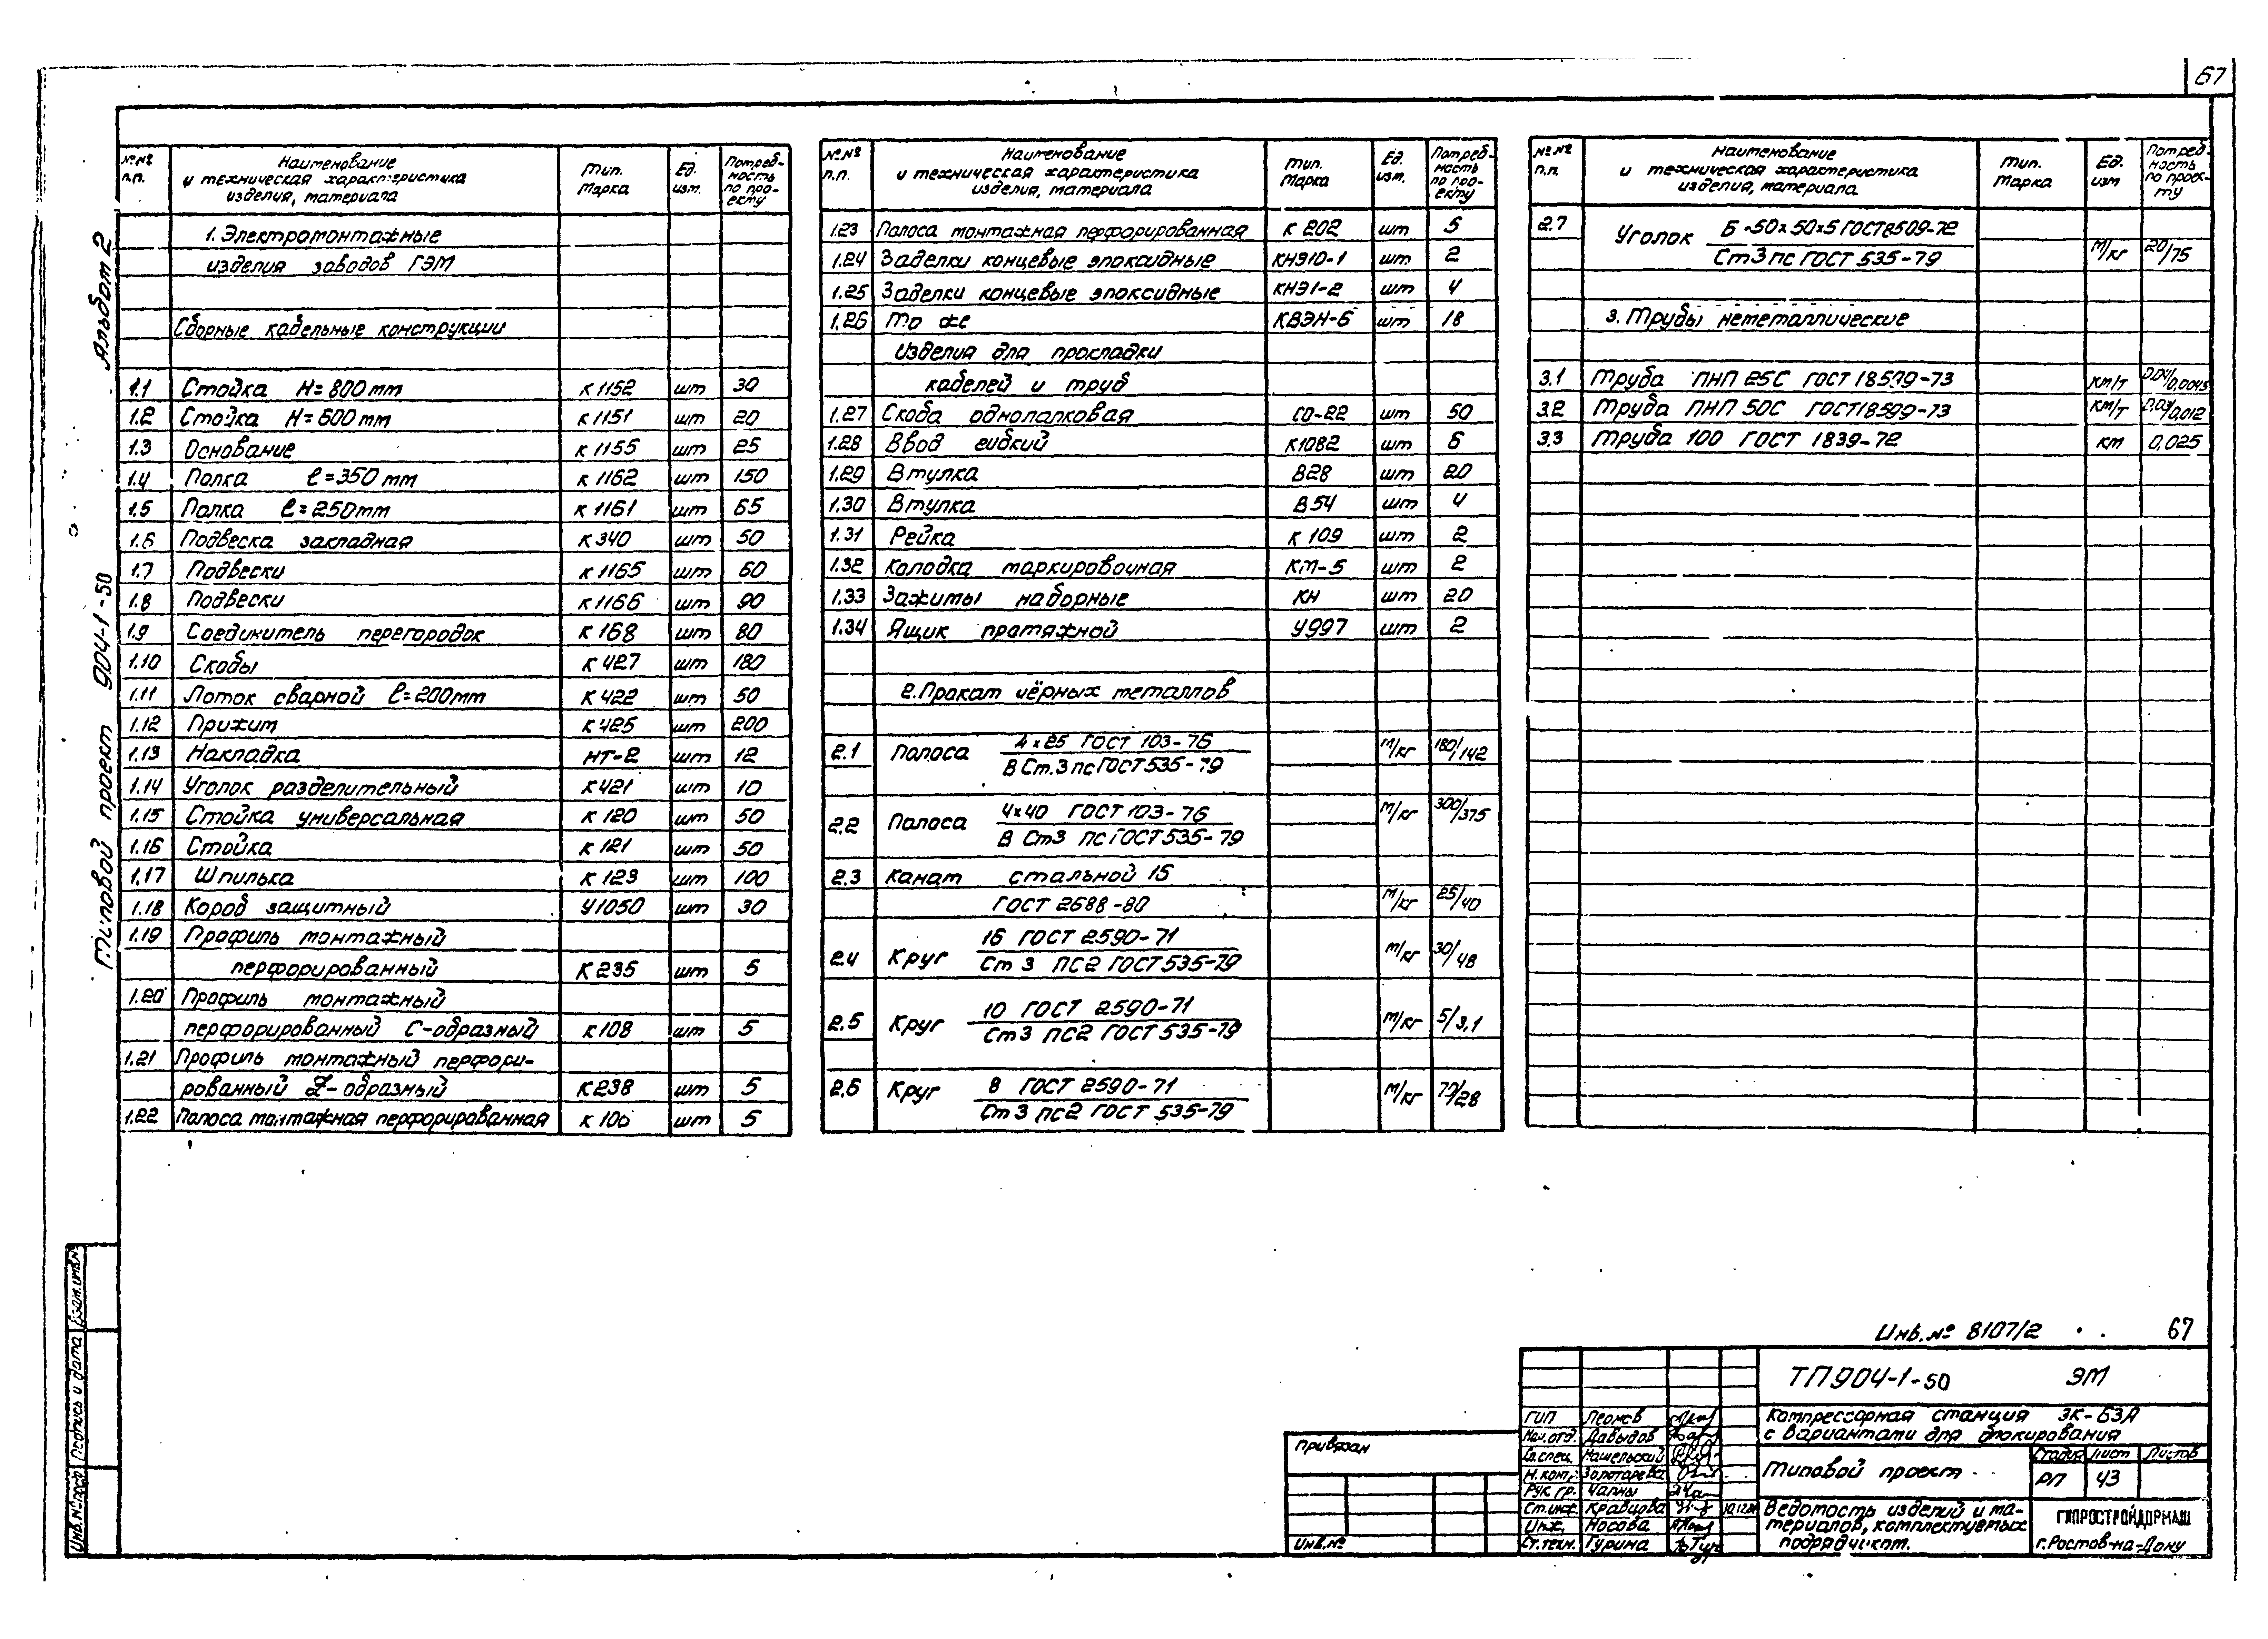 67
Альбом 2
Типовой проект 904-1-50
№№ п.п. Наименование и техническая характеристика изделия, материала Тип. Марка Ед. изм. Потребность по проекту
1. Электромонтажные
изделия заводов ГЭМ
Сборные кабельные конструкции
1.1 Стойка H=800мм К1152 шт 30
1.2 Стойка H=600мм К1151 шт 20
1.3 Основание К1155 шт 25
1.4 Полка ℓ=350мм К1162 шт 150
1.5 Полка ℓ=250мм К1161 шт 65
1.6 Подвеска закладная К340 шт 50
1.7 Подвески К1165 шт 60
1.8 Подвески К1166 шт 90
1.9 Соединитель перегородок К168 шт 80
1.10 Скобы К427 шт 180
1.11 Лоток сварной ℓ=200мм К422 шт 50
1.12 Прижим К425 шт 200
1.13 Накладка НТ-2 шт 12
1.14 Уголок разделительный К421 шт 10
1.15 Стойка универсальная К120 шт 50
1.16 Стойка К121 шт 50
1.17 Шпилька К123 шт 100
1.18 Короб защитный У1050 шт 30
1.19 Профиль монтажный
перфорированный К235 шт 5
1.20 Профиль монтажный
перфорированный С-образный К108 шт 5
1.21 Профиль монтажный перфори-
рованный Z-образный К238 шт 5
1.22 Полоса монтажная перфорированная К106 шт 5
№№ п.п. Наименование и техническая характеристика изделия, материала Тип. Марка Ед. изм. Потребность по проекту
1.23 Полоса монтажная перфорированная К202 шт 5
1.24 Заделки концевые эпоксидные КНЭ10-1 шт 2
1.25 Заделки концевые эпоксидные КНЭ1-2 шт 4
1.26 То же КВЭН-6 шт 18
Изделия для прокладки
кабелей и труб
1.27 Скоба однолапковая СО-22 шт 50
1.28 Ввод гибкий К1082 шт 6
1.29 Втулка В28 шт 20
1.30 Втулка В54 шт 4
1.31 Рейка К109 шт 2
1.32 Колодка маркировочная КМ-5 шт 2
1.33 Зажимы наборные КН шт 20
1.34 Ящик протяжной У997 шт 2
2. Прокат чёрных металлов
2.1 Полоса 4×25 ГОСТ 103-76 м/кг 180/142
В Ст.3 пс ГОСТ 535-79
2.2 Полоса 4×40 ГОСТ 103-76 м/кг 300/375
В Ст3 пс ГОСТ 535-79
2.3 Канат стальной 15
ГОСТ 2688-80 м/кг 25/40
2.4 Круг 16 ГОСТ 2590-71 м/кг 30/48
Ст 3 ПС2 ГОСТ 535-79
2.5 Круг 10 ГОСТ 2590-71 м/кг 5/3,1
Ст3 ПС2 ГОСТ 535-79
2.6 Круг 8 ГОСТ 2590-71 м/кг 70/28
Ст 3 пс2 ГОСТ 535-79
№№ п.п. Наименование и техническая характеристика изделия, материала Тип. Марка Ед. изм Потребность по проекту
2.7 Уголок Б-50×50×5 ГОСТ 8509-72 м/кг 20/75
Ст 3 пс ГОСТ 535-79
3. Трубы неметаллические
3.1 Труба ПНП 25С ГОСТ 18599-73 км/т 0,04/0,0045
3.2 Труба ПНП 50С ГОСТ 18599-73 км/т 0,03/0,012
3.3 Труба 100 ГОСТ 1839-72 км 0,025
Инв.№ 8107/2 67
ТП904-1-50 ЭМ
Компрессорная станция 3К-63А
с вариантами для блокирования
Типовой проект
Стадия Лист Листов
РП 43
Ведомость изделий и ма-
териалов, комплектуемых
подрядчиком.
ГИПРОСТРОЙДОРМАШ
г.Ростов-на-Дону
ГИП Леонов
Нач.отд. Давыдов
Гл.спец. Нашельский
Н.конт. Золотарева
Рук.гр. Чапны
Ст.инж. Кравцова
Инж. Носова
Ст.техн. Гурина
Привязан
Инв.№
Инв.№ подл. Подпись и дата Взам.инв.№